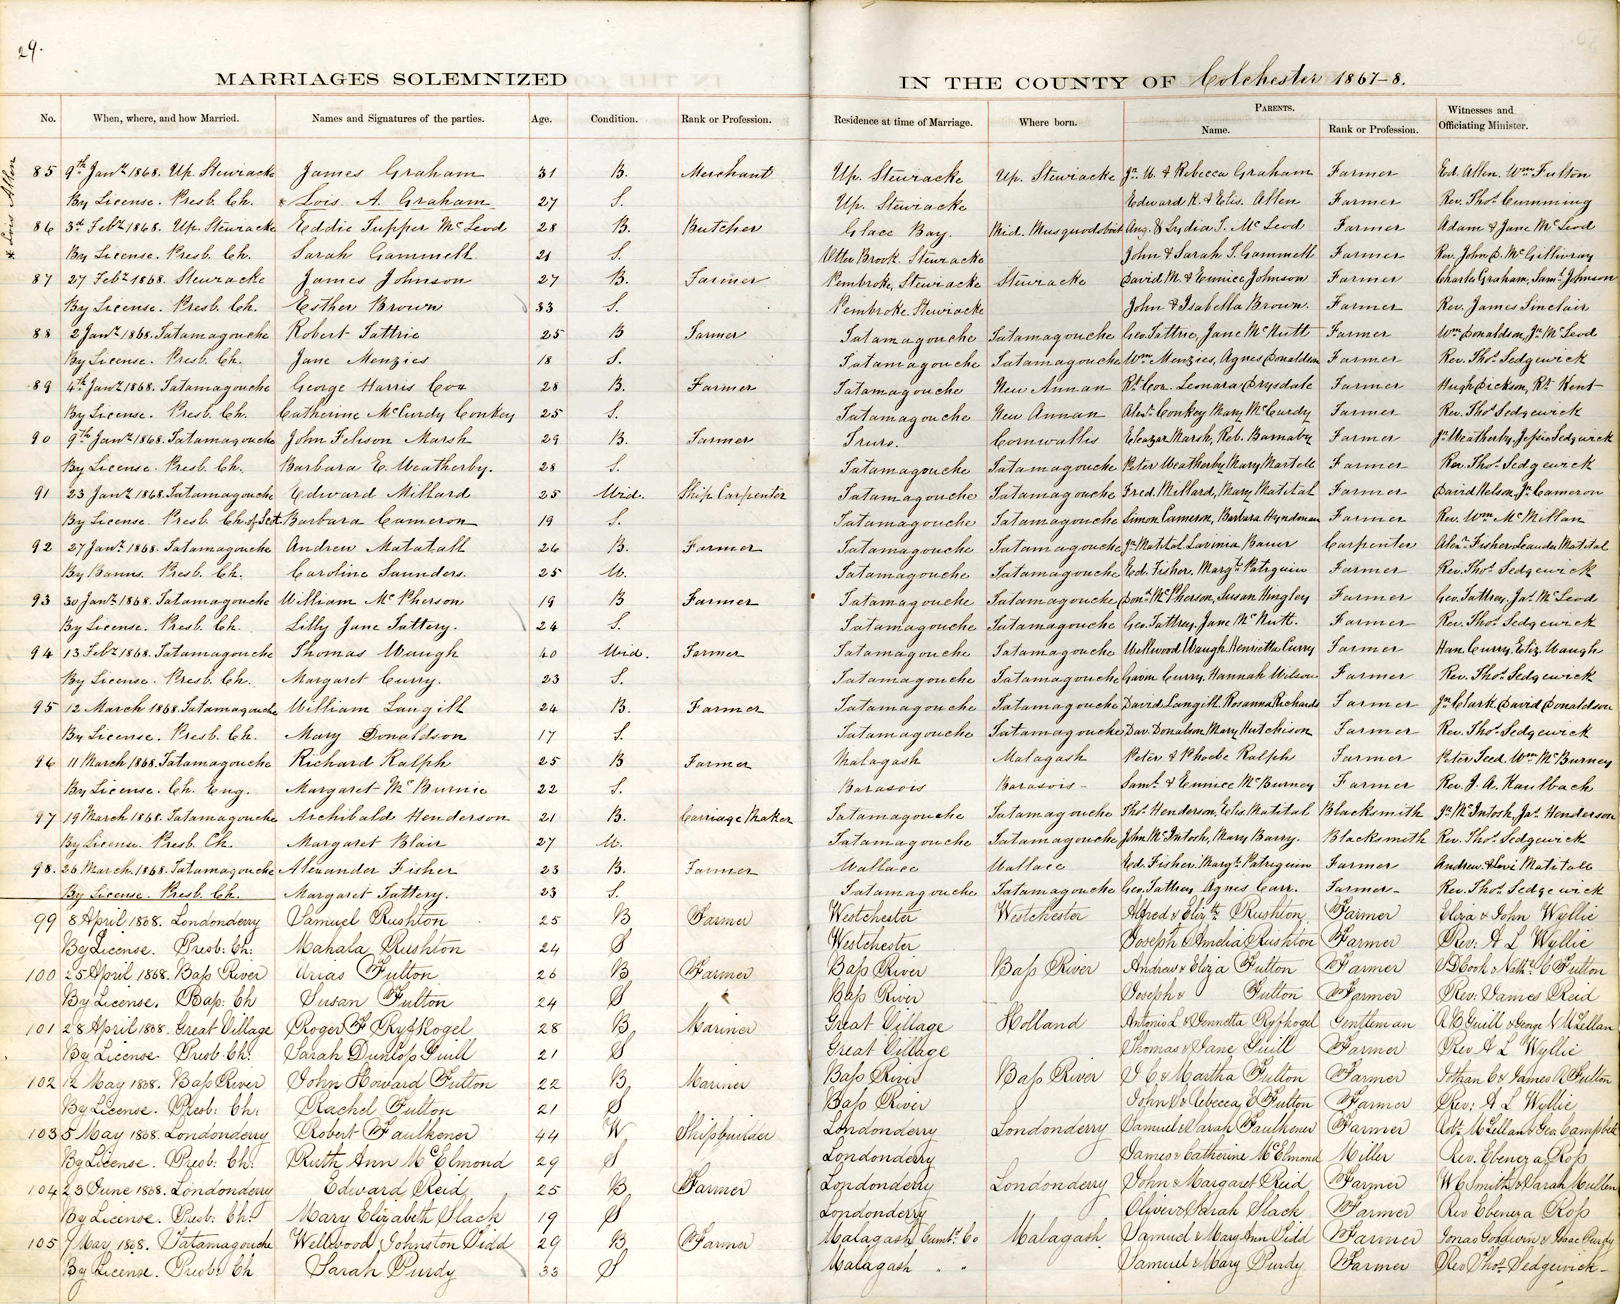 29.
MARRIAGES SOLEMNIZED IN THE COUNTY OF Colchester 1867-8.
No. When, where, and how Married. Names and Signatures of the parties. Age. Condition. Rank or Profession. Residence at time of Marriage. Where born. PARENTS. Name. Rank or Profession. Witnesses and Officiating Minister.
* Lois Allen
85 9th Jany 1868. Up. Stewiacke James Graham 31 B. Merchant Up. Stewiacke Up. Stewiacke Jn. W. & Rebecca Graham Farmer Ed. Allen. Wm Fulton
By License. Presb. Ch. * Lois. A. Graham 27 S. Up. Stewiacke Edward K. & Elis. Allen Farmer Rev. Thos. Cumming
86 3rd Feby 1868. Up. Stewiacke Eddie Tupper McLeod 28 B. Butcher Glace Bay. Mid. Musquodoboit Ang. & Lydia T. McLeod Farmer Adam & Jane McLeod
By License. Presb. Ch. Sarah Gammell 21 S. Otter Brook Stewiacke John & Sarah T. Gammell Farmer Rev. John D. McGillivray
87 27 Feby 1868. Stewiacke James Johnson 27 B. Farmer Pembroke, Stewiacke Stewiacke David M. & Eunice Johnson Farmer Charles Graham, Saml. Johnson
By License. Presb. Ch. Esther Brown 33 S. Pembroke. Stewiacke John & Isabella Brown. Farmer Rev. James Sinclair
88 2 Jany 1868. Tatamagouche Robert Tattrie 25 B Farmer Tatamagouche Tatamagouche Geo. Tattrie, Jane McNutt Farmer Wm Donaldson, Jn McLeod
By License. Presb. Ch. Jane Menzies 18 S. Tatamagouche Tatamagouche Wm Menzies, Agnes Donaldson Farmer Rev. Thos. Sedgewick
89 4th Jany 1868. Tatamagouche George Harris Cox 28 B. Farmer Tatamagouche New Annan Rt. Cox. Leonora Drysdale Farmer Hugh Dickson, Rt. Kent
By License. Presb. Ch. Catherine McCurdy Conkey 25 S. Tatamagouche New Annan Alexr. Conkey Mary McCurdy Farmer Rev. Thos. Sedgewick
90 9th Jany 1868. Tatamagouche John Marsh 29 B. Farmer Truro. Cornwallis Eleazar Marsh, Reb. Barnaby Farmer Jn Weatherby, Jessie Sedgwick
By License. Presb. Ch. Barbara E. Weatherby. 28 S. Tatamagouche Tatamagouche Peter Weatherby Mary Martell Farmer Rev. Thos. Sedgewick
91 23 Jany 1868. Tatamagouche Edward Millard 25 Wid. Ship Carpenter Tatamagouche Tatamagouche Fred. Millard, Mary Matital Farmer David Nelson, Jn Cameron
By License. Presb. Ch. of Scot. Barbara Cameron 19 S. Tatamagouche Tatamagouche Simon Cameron, Barbara Hyndman Farmer Rev. Wm McMillan
92 27 Jany 1868. Tatamagouche Andrew Matatall 26 B. Farmer Tatamagouche Tatamagouche Jn Matital Lavinia Bauer Carpenter Alexr Fisher Leander Matital
By Banns. Presb. Ch. Caroline Saunders. 25 W. Tatamagouche Tatamagouche Ed. Fisher. Margt. Patriquin Farmer Rev. Thos. Sedgewick
93 30 Jany 1868. Tatamagouche William McPherson 19 B Farmer Tatamagouche Tatamagouche Dond McPherson, Susan Hingley Farmer Geo. Tattrey, Jas. McLeod
By License. Presb. Ch. Lilly Jane Tattery. 24 S. Tatamagouche Tatamagouche Geo. Tattrey, Jane McNutt. Farmer Rev. Thos. Sedgewick
94 13 Feby 1868. Tatamagouche Thomas Waugh 40 Wid. Farmer Tatamagouche Tatamagouche Wellwood Waugh Henrietta Curry Farmer Han. Curry. Eliz. Waugh
By License. Presb. Ch. Margaret Curry. 23 S. Tatamagouche Tatamagouche Gavin Curry, Hannah Wilson Farmer Rev. Thos. Sedgewick
95 12 March 1868. Tatamagouche William Langill 24 B. Farmer Tatamagouche Tatamagouche David Langill Rosanna Richards Farmer Jn Clark David Donaldson
By License. Presb. Ch. Mary Donaldson 17 S. Tatamagouche Tatamagouche Dav. Donalson, Mary Hutchison Farmer Rev. Thos. Sedgewick
96 11 March 1868. Tatamagouche Richard Ralph 25 B Farmer Malagash Malagash Peter & Phoebe Ralph Farmer Peter Teed. Wm McBurney
By License. Ch. Eng. Margaret McBurnie 22 S. Barasois Barasois Saml. & Eunice McBurney Farmer Rev. J. A. Kaulbach
97 19 March 1868. Tatamagouche Archibald Henderson 21 B. Carriage Maker Tatamagouche Tatamagouche Thos. Henderson, Elis. Matital Blacksmith Jn McIntosh, Jas. Henderson
By License. Presb. Ch. Margaret Blair 27 W. Tatamagouche Tatamagouche John McIntosh, Mary Barry. Blacksmith Rev. Thos. Sedgewick
98. 26 March 1868. Tatamagouche Alexander Fisher 23 B. Farmer Wallace Wallace Ed. Fisher. Margt. Patriquin Farmer Andrew & Levi Matital
By License. Presb. Ch. Margaret Tattery. 23 S. Tatamagouche Tatamagouche Geo. Tattrey Agnes Carr. Farmer Rev. Thos. Sedgewick
99 8 April 1868. Londonderry Samuel Rushton 25 B Farmer Westchester Westchester Alfred & Elizth Rushton Farmer Eliza & John Wyllie
By License. Presb: Ch: Mahala Rushton 24 S Westchester Joseph & Amelia Rushton Farmer Rev: A L Wyllie
100 25 April 1868. Bass River Urias Fulton 26 B Farmer Bass River Bass River Andrew & Eliza Fulton Farmer Cook & Nathl C Fulton
By License. Bap: Ch Susan Fulton 24 S Bass River Joseph & Fulton Farmer Rev: James Reid
101 28 April 1868. Great Village Roger F Ryfkogel 28 B Mariner Great Village Holland Antonio L & Jennetta Ryfkogel Gentleman R B Guill & George McLellan
By License Presb: Ch: Sarah Dunlop Guill 21 S Great Village Thomas & Jane Guill Farmer Rev A L Wyllie
102 12 May 1868. Bass River John Howard Fulton 22 B Mariner Bass River Bass River J C & Martha Fulton Farmer Jothan C & James A Fulton
By License. Presb: Ch: Rachel Fulton 21 S Bass River John S & Rebecca E Fulton Farmer Rev: A L Wyllie
103 5 May 1868. Londonderry Robert Faulkener 44 W Shipbuilder Londonderry Londonderry Samuel & Sarah Faulkener Farmer Robt McLellan & Geo. Campbell
By License. Presb: Ch: Ruth Ann McElmond 29 S Londonderry James & Catherine McElmond Miller Rev. Ebenezar Ross
104 23 June 1868. Londonderry Edward Reid 25 B Farmer Londonderry Londonderry John & Margaret Reid Farmer W C Smith & Sarah Mullen
By License. Presb: Ch: Mary Elizabeth Slack 19 S Londonderry Oliver & Sarah Slack Farmer Rev Ebeneza Ross
105 7 May 1868. Tatamagouche Wellwood Johnston Tidd 29 B Farmer Malagash Cumbd. Co Malagash Samuel & Mary Ann Tidd Farmer Jonas Goodwin & Isaac Purdy
By License. Presb: Ch Sarah Purdy 33 S Malagash " " Samuel & Mary Purdy Farmer Rev Thos. Sedgewick